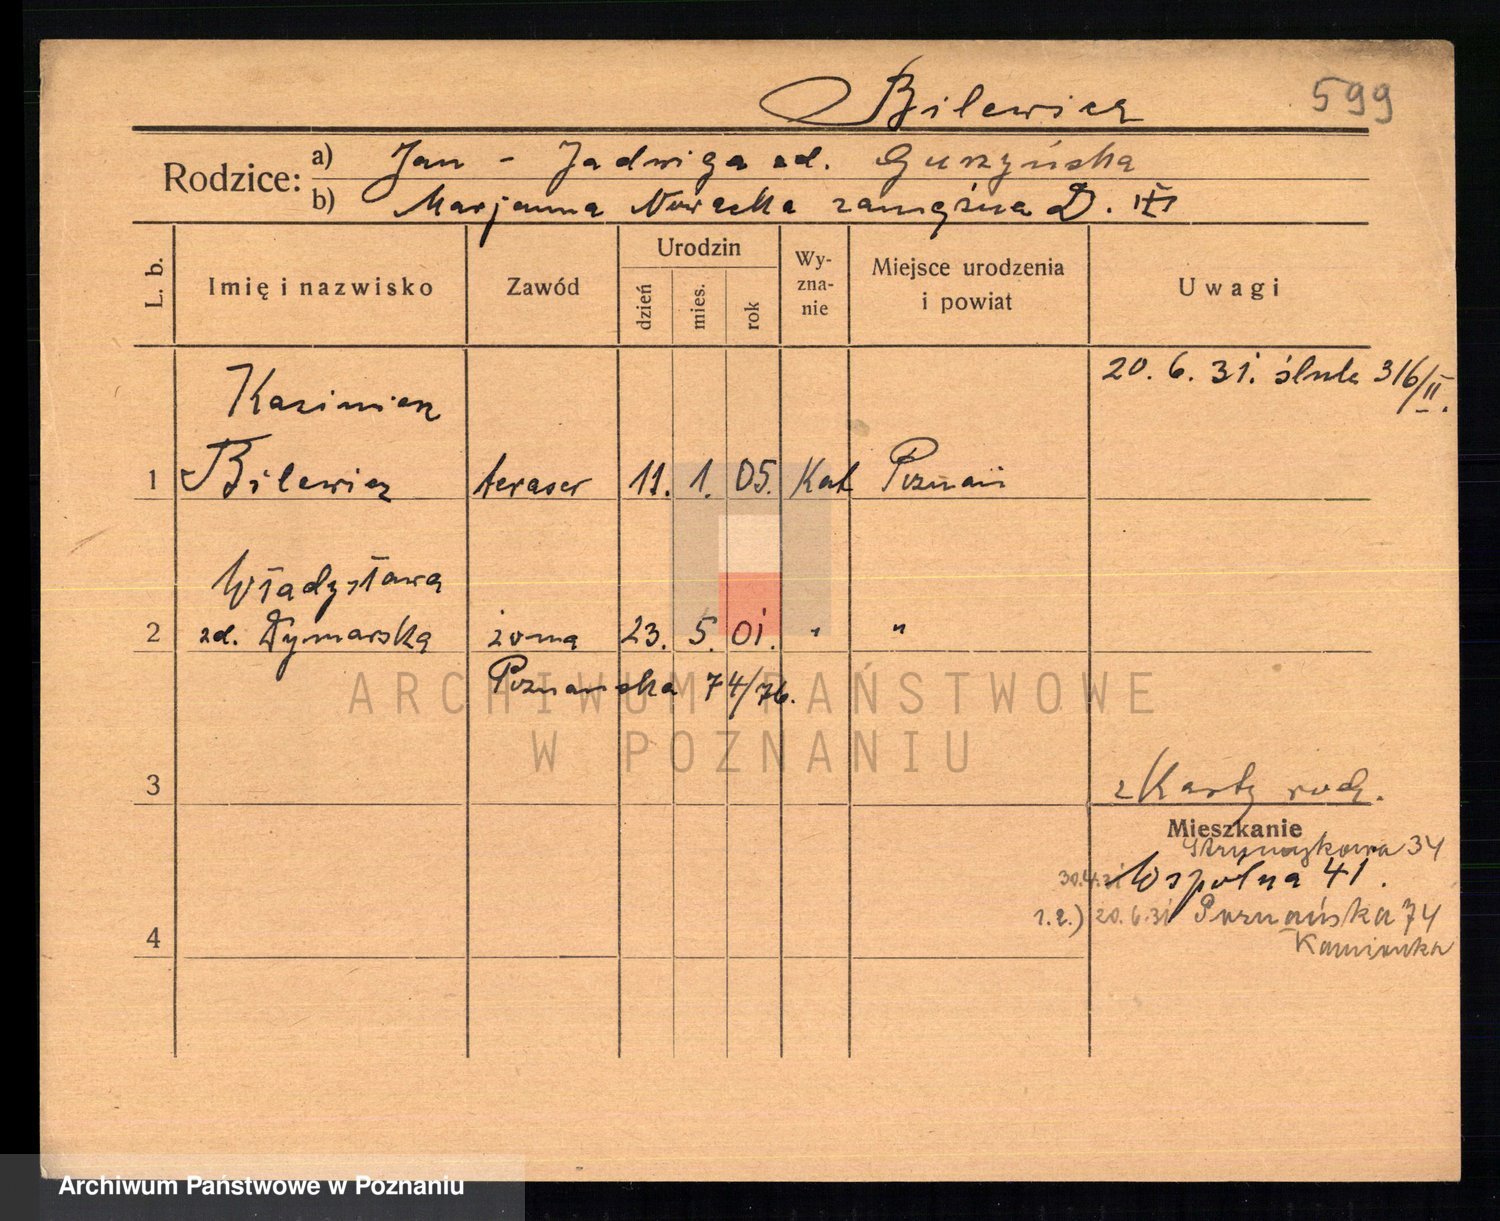 Bilewicz
599
Rodzice: a) Jan - Jadwiga zd. Guszyńska
b) Marjanna Nowacka zamężna D. III
L. b.
Imię i nazwisko
Zawód
Urodzin
dzień
mies.
rok
Wy-
zna-
nie
Miejsce urodzenia
i powiat
Uwagi
20. 6. 31. ślub 316/II.
Kazimierz
1 Bilewicz teraser 11. 1. 05. Kat Poznań
Władysława
2 zd. Dymarska żona 23. 5. 01. " "
Poznańska 74/76.
ARCHIWUM PAŃSTWOWE
W POZNANIU
3
z Karty rodz.
Mieszkanie
34
30.4.31 Wspólna 41.
1.2.) 20.6.31 Poznańska 74
4
Kamionka
Archiwum Państwowe w Poznaniu